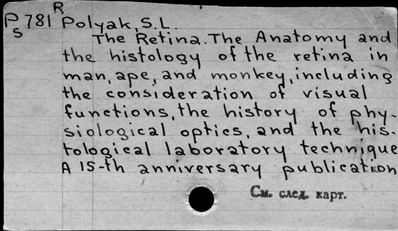 R
P 781 Polyak, S.L.
S
The Retina. The Anatomy and
the histology of the retina in
man, ape, and monkey, including
the consideration of visual
functions, the history of phy-
siological optics, and the his-
tological laboratory technique
A 15-th anniversary publication
См. след. карт.